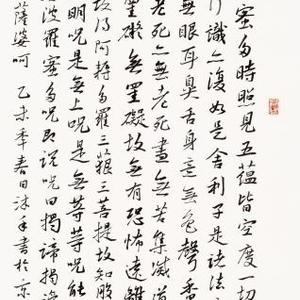 蜜多時照見五蘊皆空度一切
行識亦復如是舍利子是諸法
無眼耳鼻舌身意無色聲香
老死亦無老死盡無苦集滅道
罣礙無罣礙故無有恐怖遠離
故得阿耨多羅三藐三菩提故知般
明呪是無上呪是無等等呪能
波羅蜜多呪即說呪曰揭諦揭諦
薩婆呵 乙未年春日沐手書於京